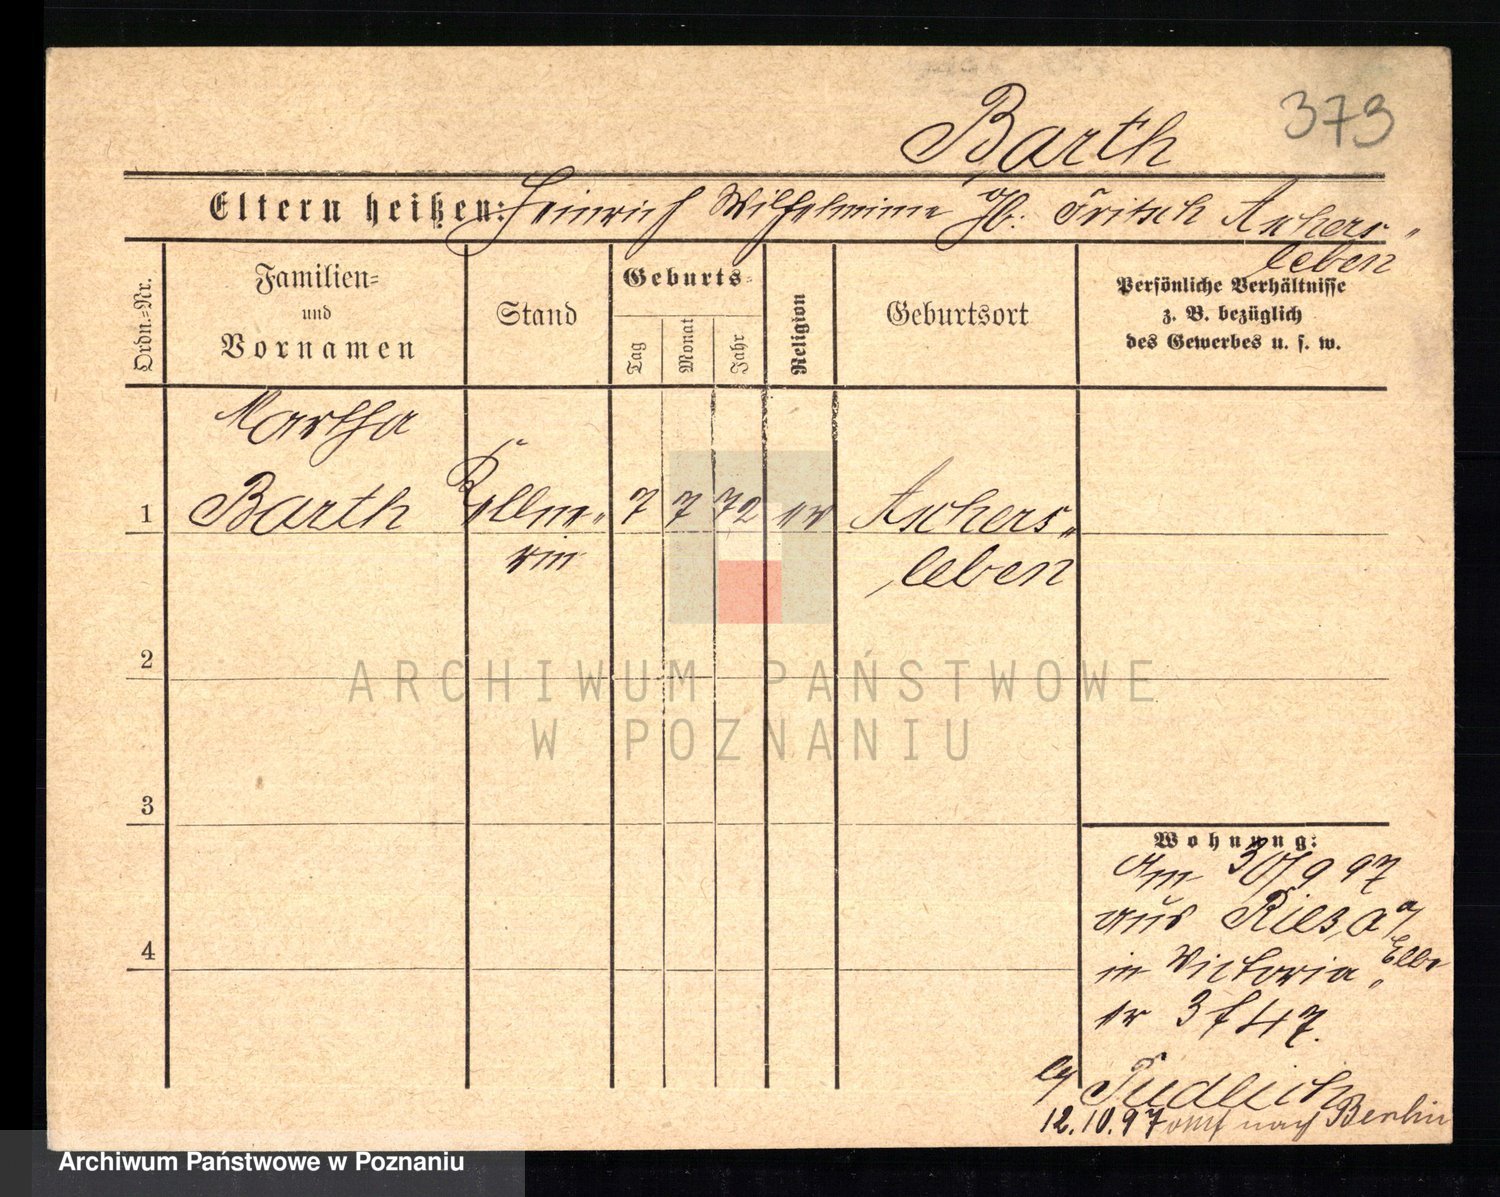 373
Barth
Eltern heißen: Heinrich Wilhelmine gb. Fritsch Aschers-
leben
Ordn.-Nr.
Familien-
und
Vornamen
Stand
Geburts-
Tag
Monat
Jahr
Religion
Geburtsort
Persönliche Verhältnisse
z. B. bezüglich
des Gewerbes u. s. w.
Martha
1 Barth Kellne- 7 7 72 ev Aschers-
rin leben
2
3
4
Wohnung:
Am 30/9 97
aus Riesa a/
Elbe
in Victoria
er 3 f 47.
by
12.10.97 nach Berlin
ARCHIWUM PAŃSTWOWE
W POZNANIU
Archiwum Państwowe w Poznaniu